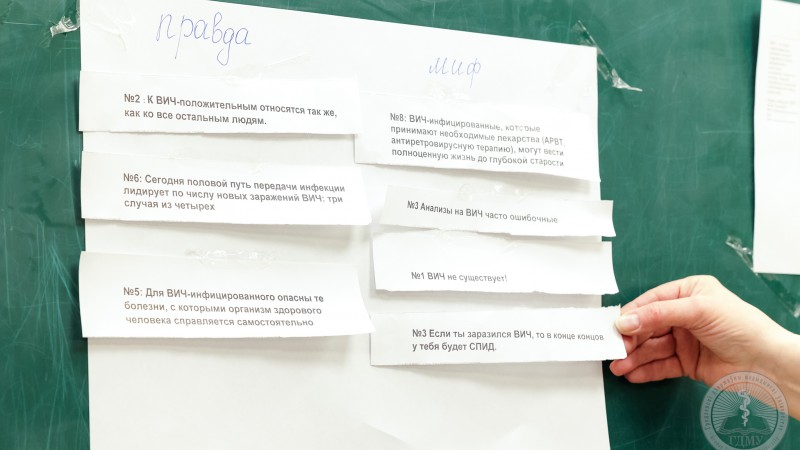 правда
№2 : К ВИЧ-положительным относятся так же,
как ко все остальным людям.
№6: Сегодня половой путь передачи инфекции
лидирует по числу новых заражений ВИЧ: три
случая из четырех
№5: Для ВИЧ-инфицированного опасны те
болезни, с которыми организм здорового
человека справляется самостоятельно
миф
№8: ВИЧ-инфицированные, которые
принимают необходимые лекарства (АРВТ
антиретровирусную терапию), могут вести
полноценную жизнь до глубокой старости
№3 Анализы на ВИЧ часто ошибочные
№1 ВИЧ не существует!
№3 Если ты заразился ВИЧ, то в конце концов
у тебя будет СПИД.